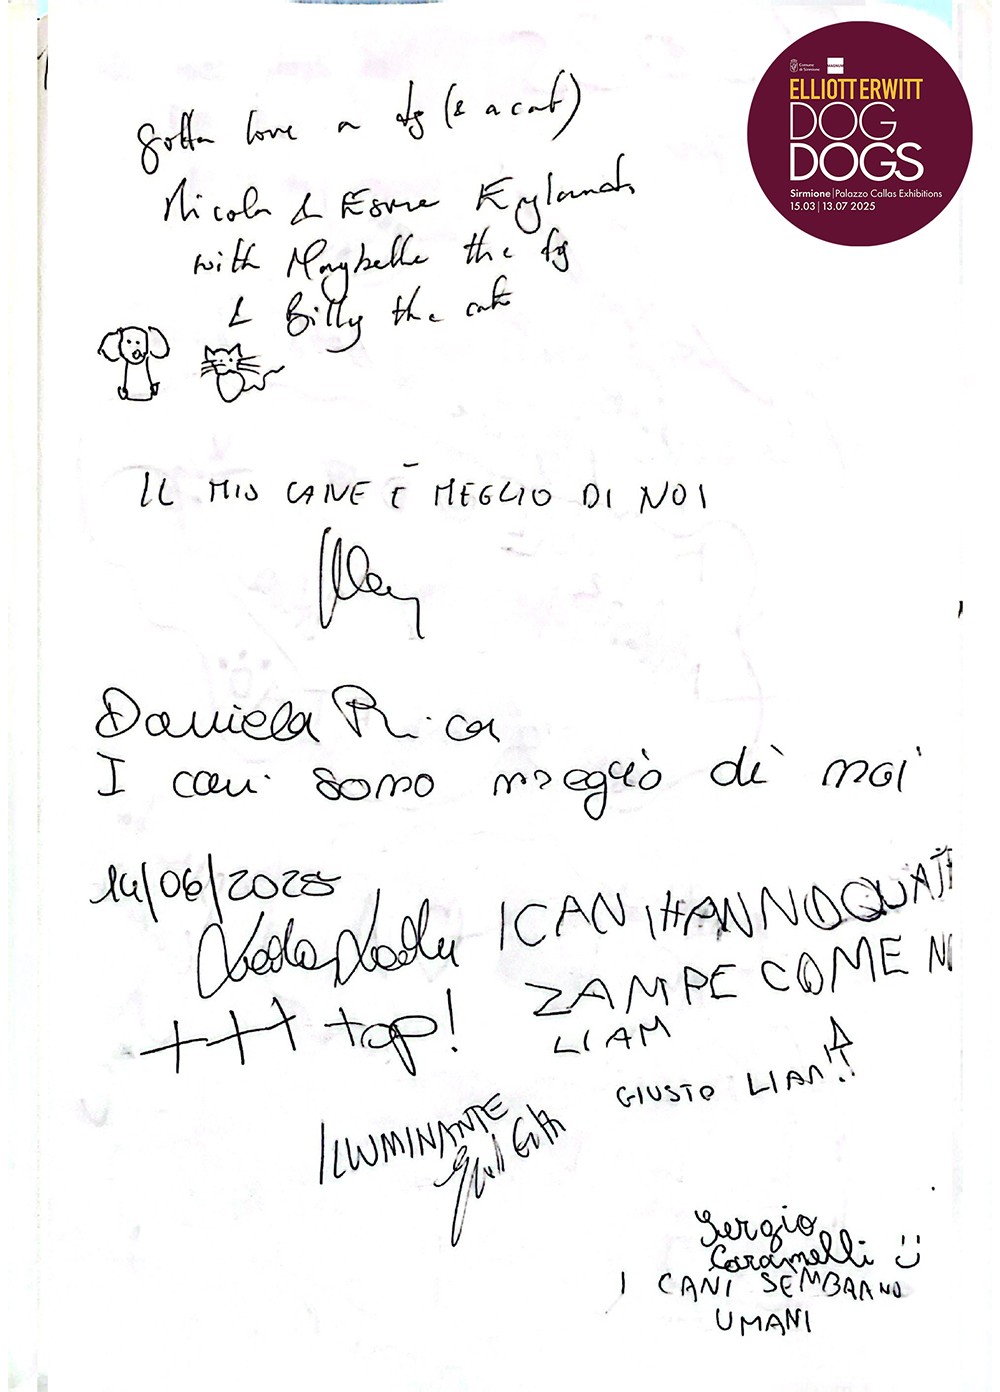 Comune
di Sirmione
MAGNUM
ELLIOTT ERWITT
DOG
DOGS
Sirmione | Palazzo Callas Exhibitions
15.03 | 13.07 2025
Gotta love a dog (& a cat)
Nicola & Esme England
with Maybelle the dog
& Billy the cat
IL MIO CANE È MEGLIO DI NOI
Daniela Rica
I cani sono meglio di noi
14/06/2025
+++ top!
I CANI HANNO QUATT
ZAMPE COME N
LIAM
GIUSTO LIAM!!
ILLUMINANTE
Sergio
Caramelli
I CANI SEMBRANO
UMANI